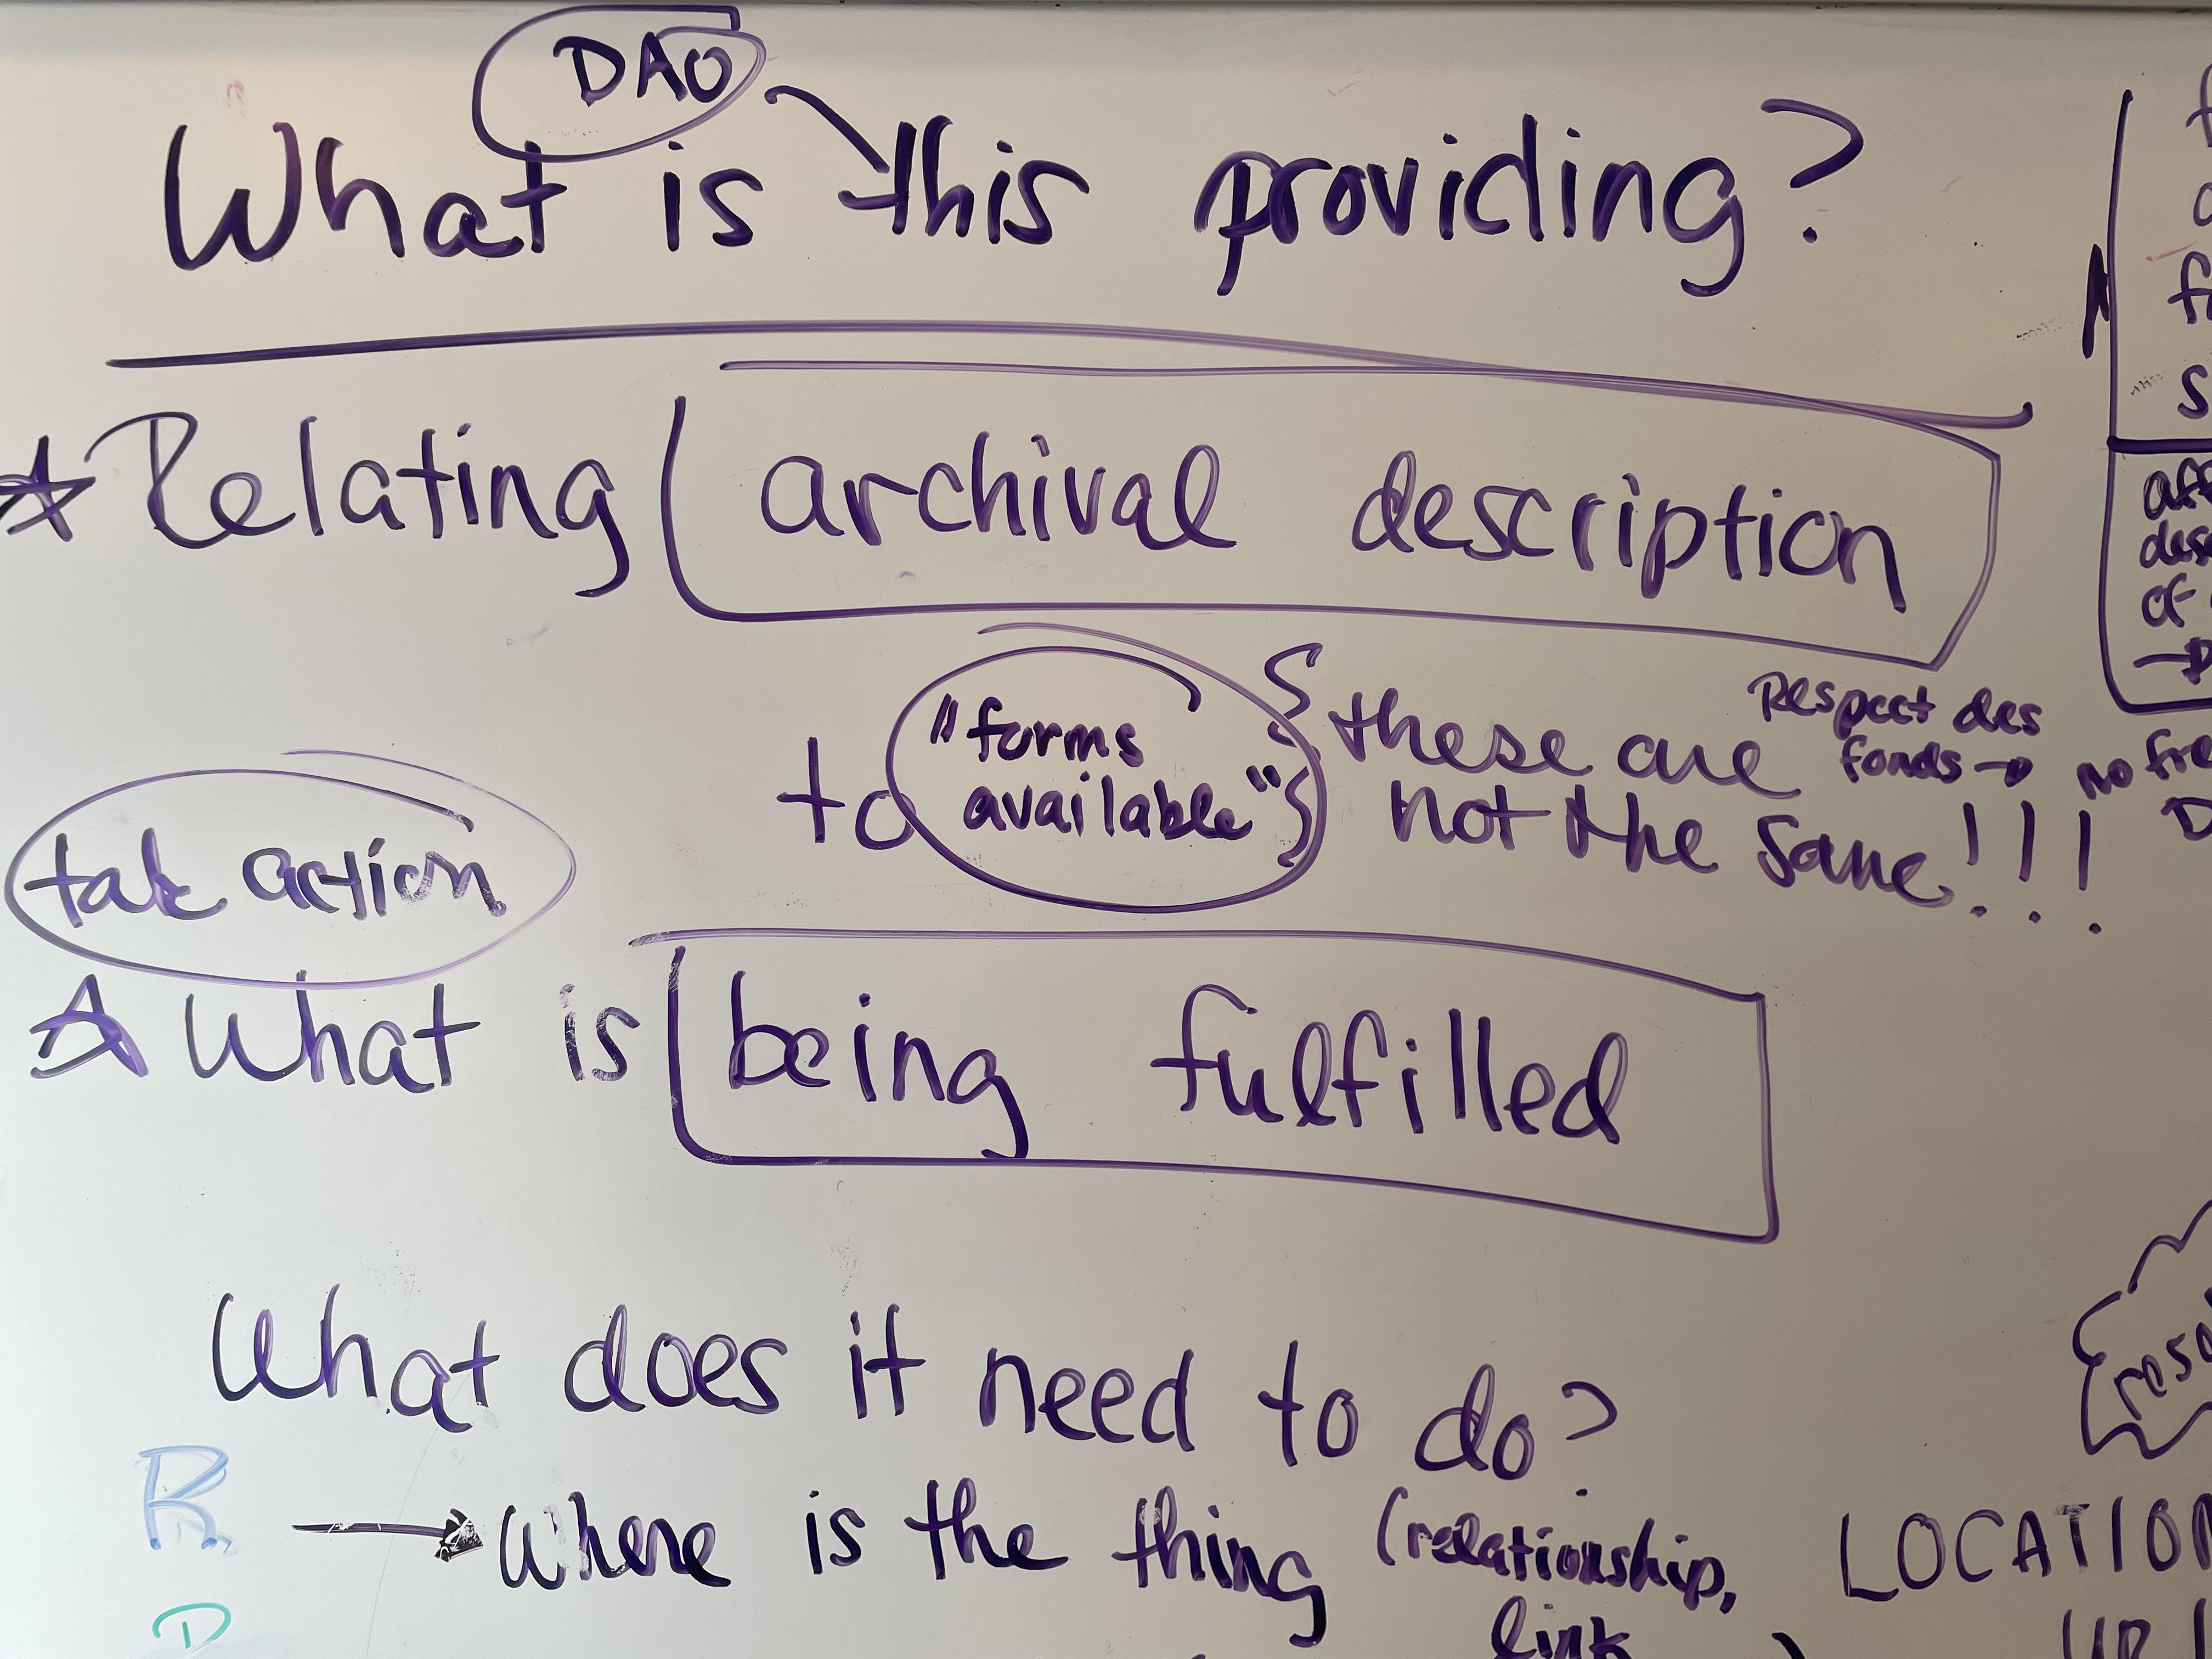 DAO
What is this providing?
Relating archival description
to "forms
available"
these are
not the same!!!
Respect des
fonds → no
take action
What is being fulfilled
What does it need to do?
R
→ Where is the thing (relationship,
link
LOCATION
D